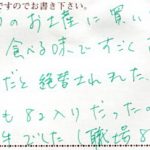 ですのでお書き下さい。
のお土産に買い
食べる味ですごく
だと絶賛されました
も82入りだった。
でした(職場8